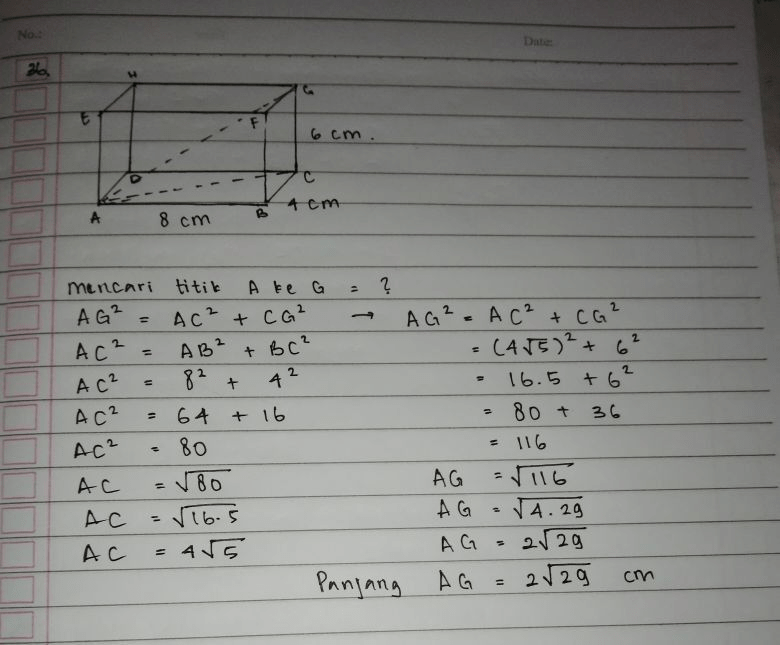 No.:
Date:
36.
H
G
E
F
6 cm.
D
C
A
8 cm
B
4 cm
mencari titik A ke G = ?
AG² = AC² + CG² → AG² = AC² + CG²
AC² = AB² + BC² = (4√5)² + 6²
AC² = 8² + 4² = 16.5 + 6²
AC² = 64 + 16 = 80 + 36
AC² = 80 = 116
AC = √80 AG = √116
AC = √16.5 AG = √4.29
AC = 4√5 AG = 2√29
Panjang AG = 2√29 cm